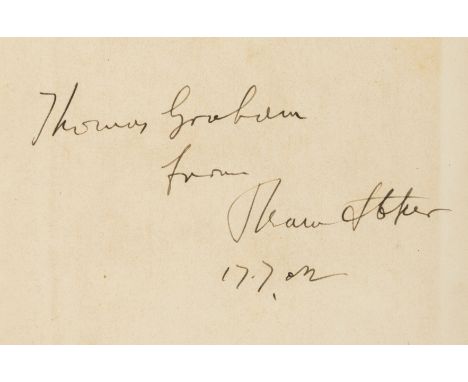 Thomas Graham
from
Bram Stoker
17.7.02